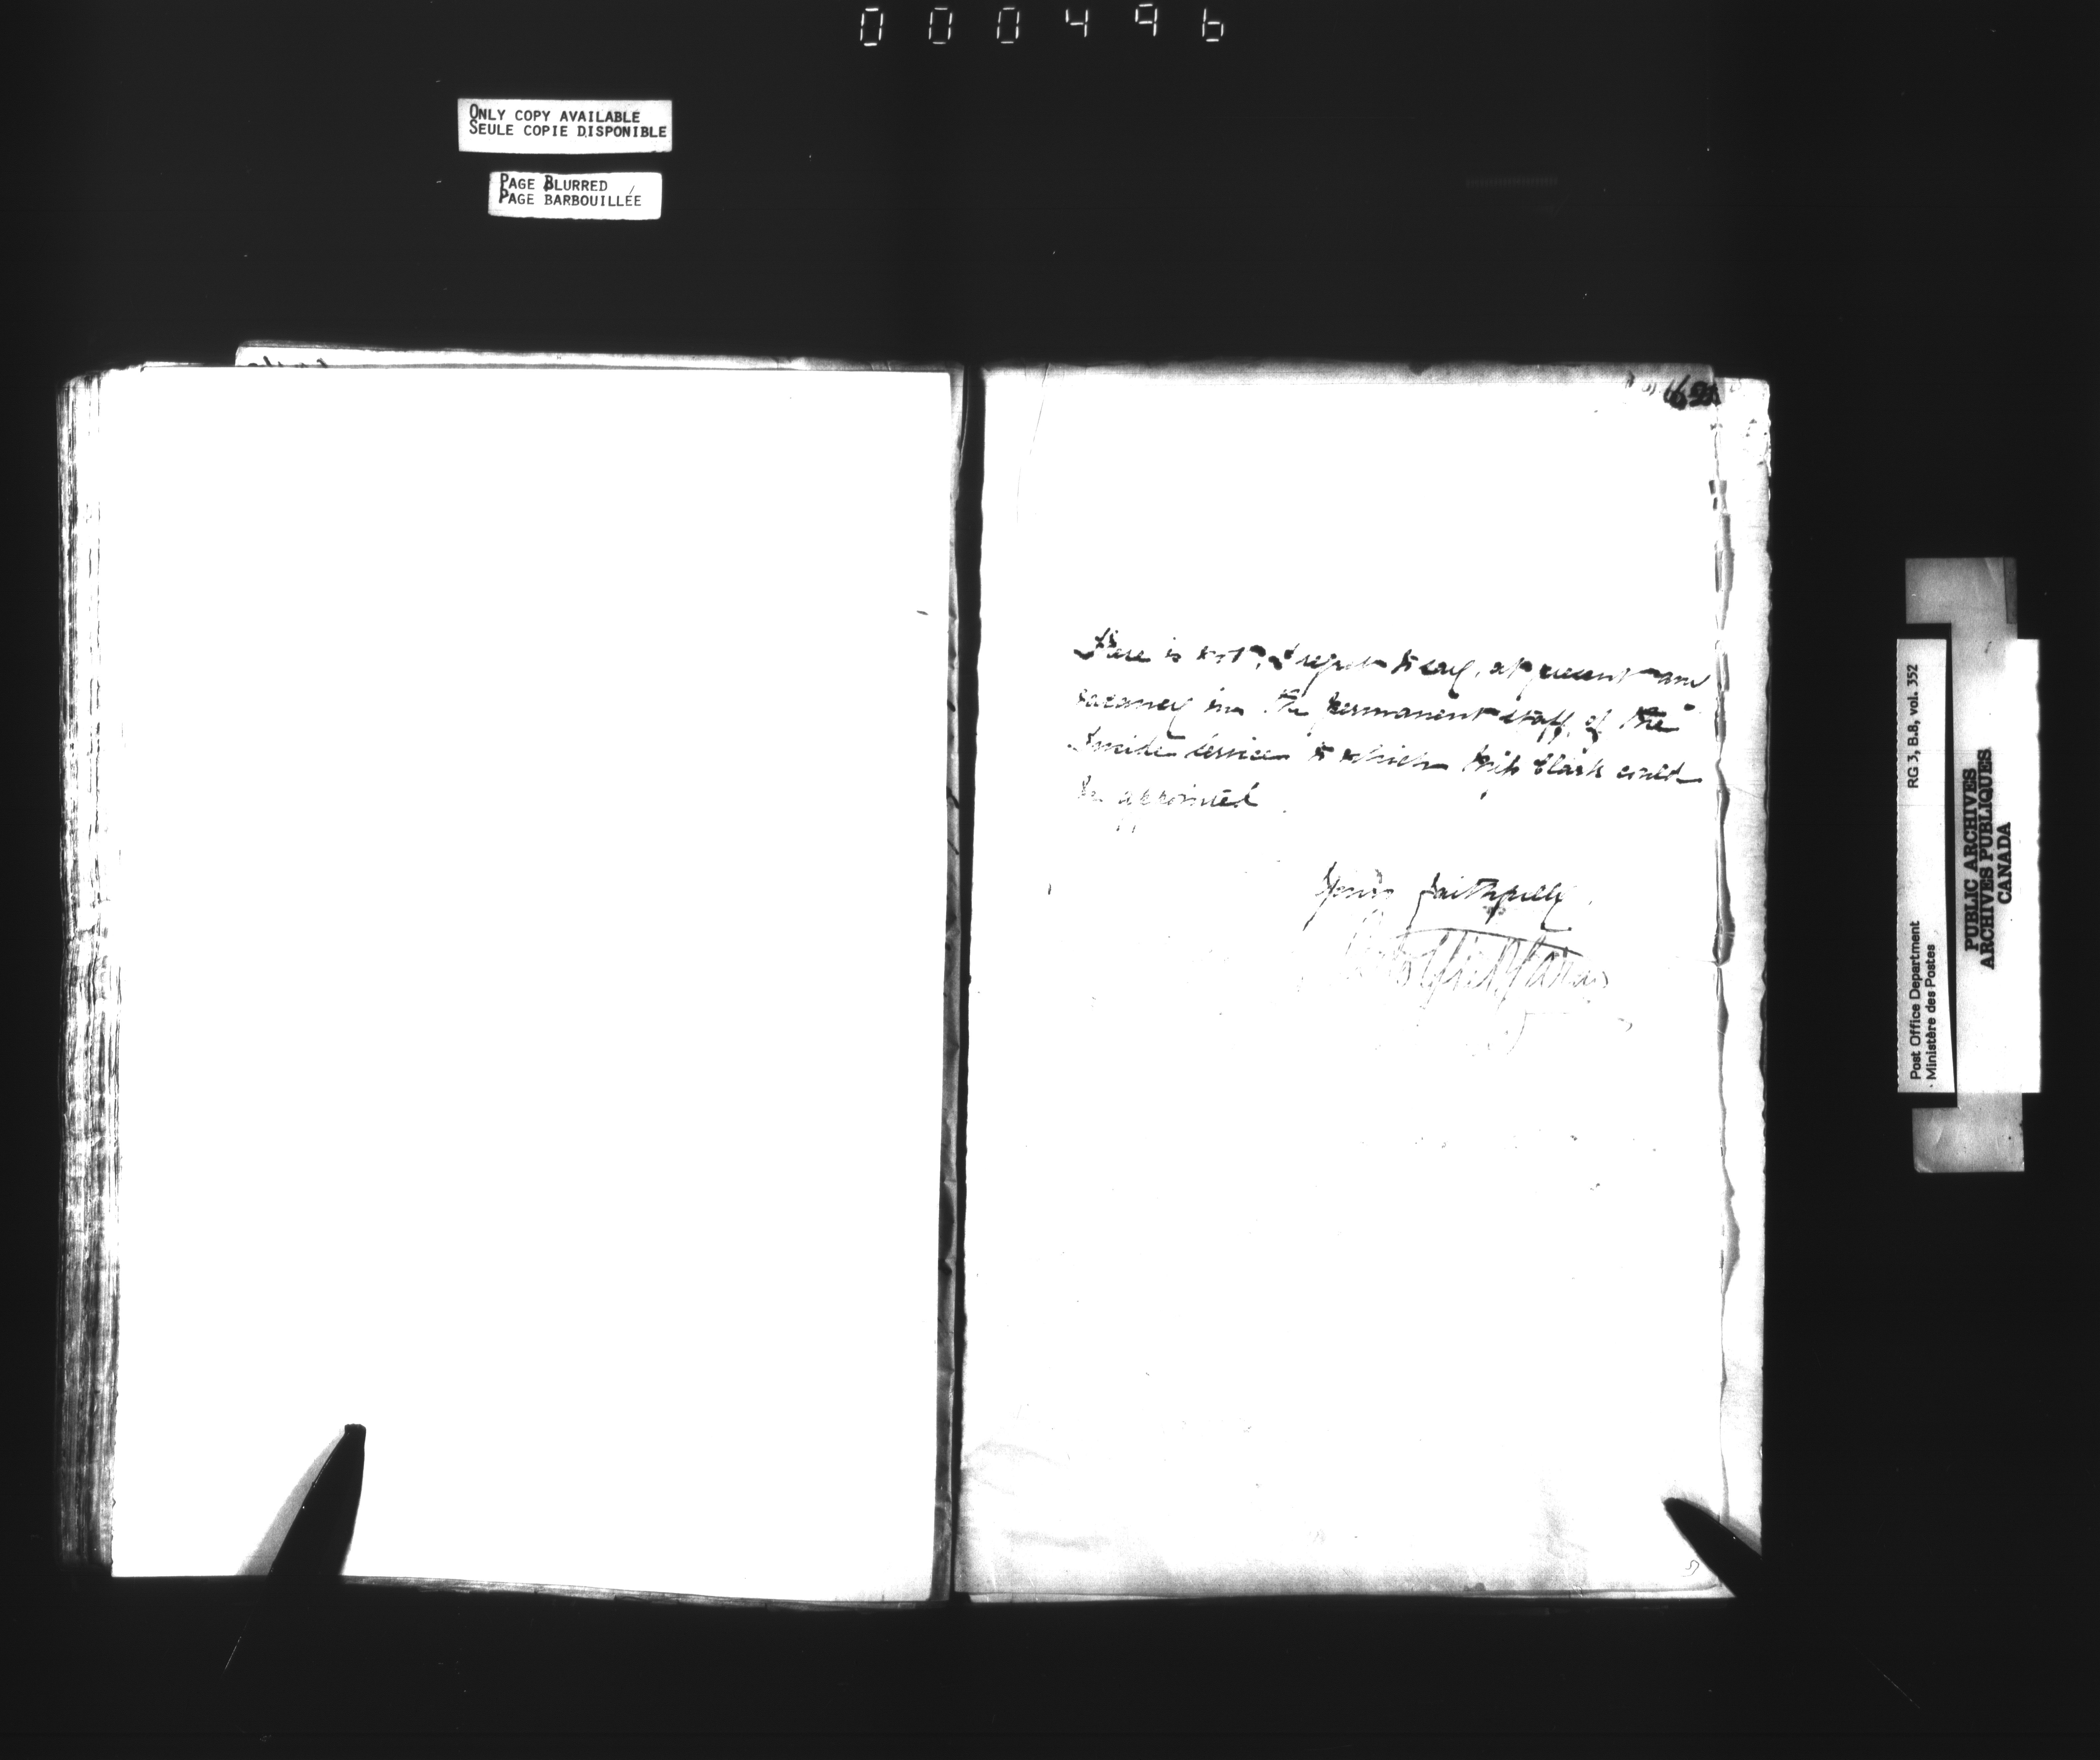 000496
ONLY COPY AVAILABLE
SEULE COPIE DISPONIBLE
PAGE BLURRED
PAGE BARBOUILLÉE
There is not, I regret to say, at present any
vacancy in the permanent staff of the
Inside service to which Miss Clark could
be appointed
Yours faithfully
RG 3, B.8, vol. 352
Post Office Department
Ministère des Postes
PUBLIC ARCHIVES
ARCHIVES PUBLIQUES
CANADA